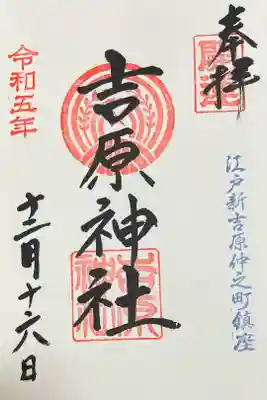 奉拝
江戸新吉原仲之町鎮座
吉原神社
令和五年
十二月十六日